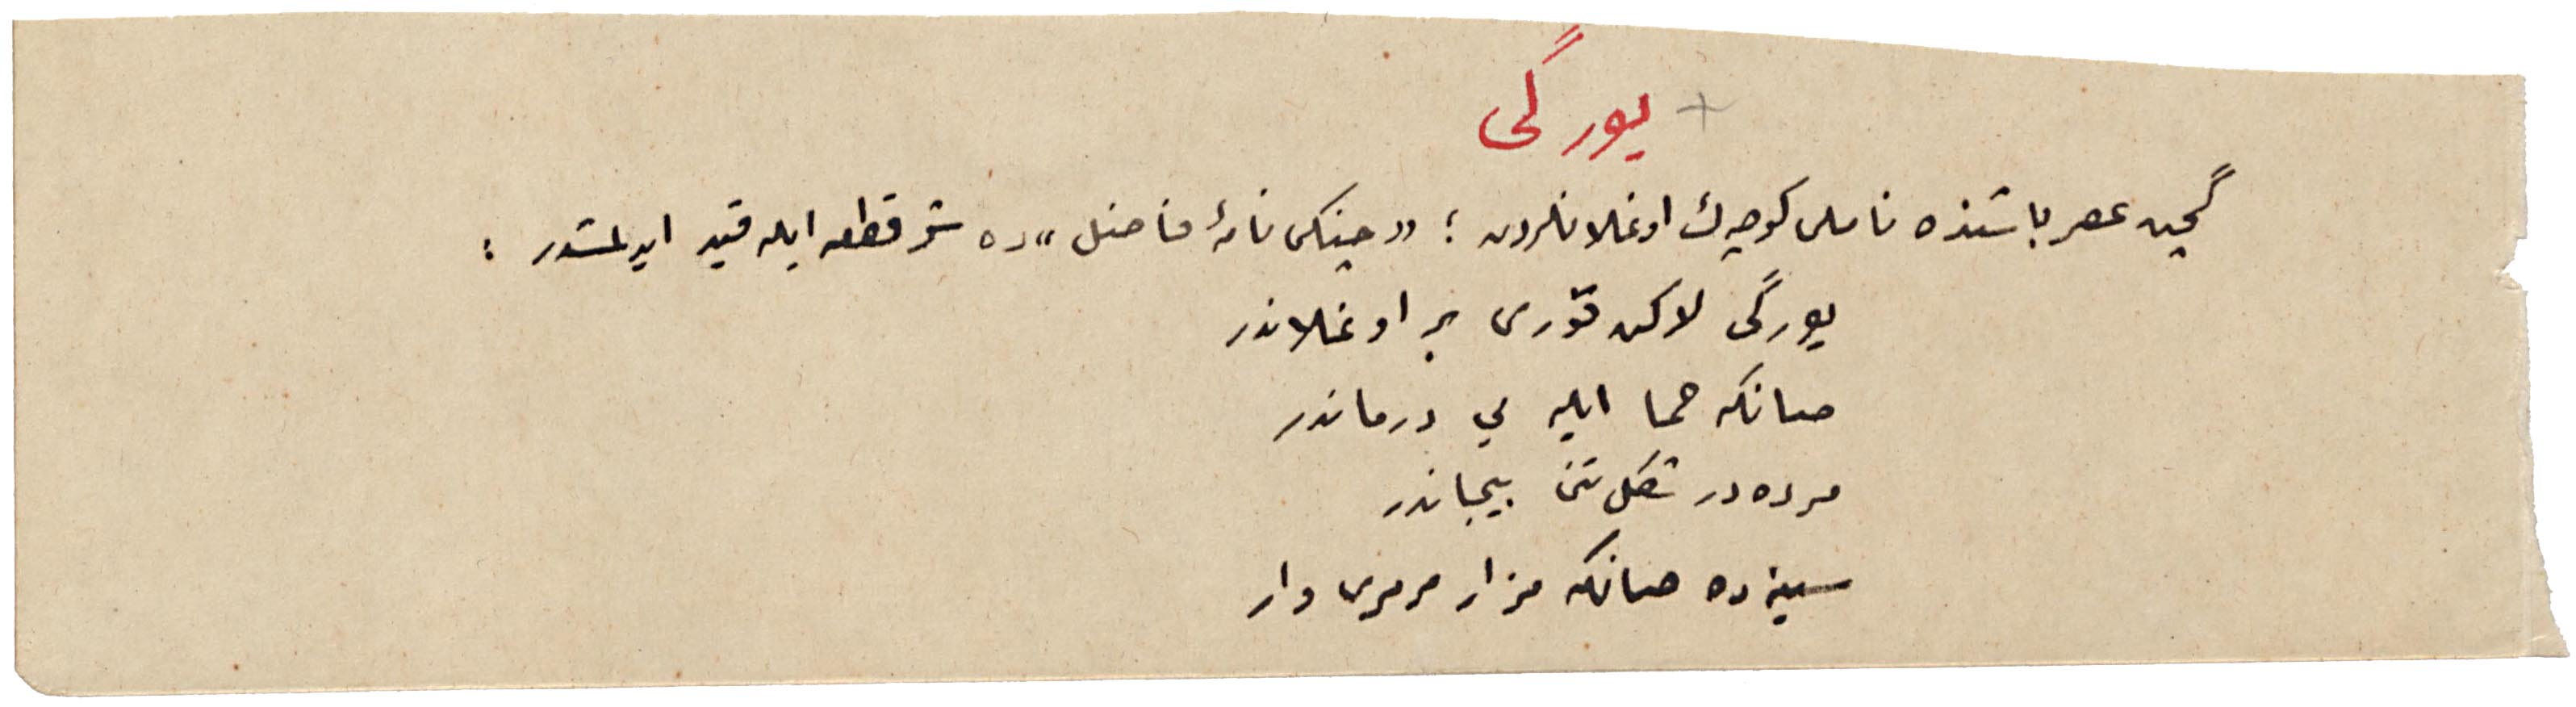 یورگی
گچن عصر باشنده ناملی كوچك اوغلانلردن ؛ «چنگی نامۀ فاضل» ده شو قطعه ایله قید ایدلمشدر :
یورگی لاكن قوری بر اوغلاندر
صانكه حما ایله بی درماندر
مرده در شكل تن بیجاندر
سینه ده صانكه مزار مرمری وار